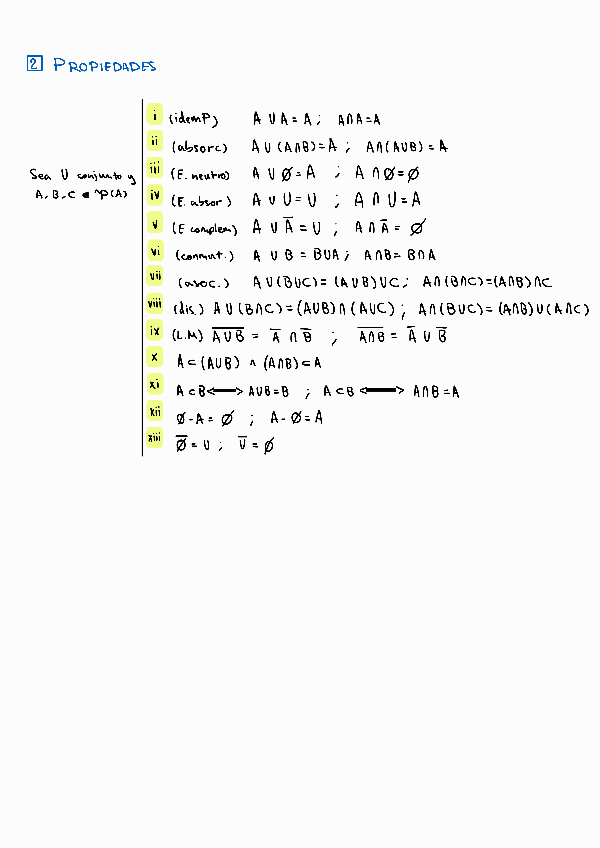 2 PROPIEDADES
Sea U conjunto y
A, B, C ∈ P(A)
i (idemP) A ∪ A = A ; A∩A=A
ii (absorc) A ∪ (A∩B)=A ; A∩(A∪B)=A
iii (E. neutro) A ∪ Ø = A ; A ∩ Ø = Ø
iv (E. absor) A ∪ U = U ; A ∩ U = A
v (E complem) A ∪ A̅ = U ; A∩A̅ = Ø
vi (conmut.) A ∪ B = B∪A ; A∩B = B∩A
vii (asoc.) A∪(B∪C)=(A∪B)∪C ; A∩(B∩C)=(A∩B)∩C
viii (dis.) A∪(B∩C)=(A∪B)∩(A∪C) ; A∩(B∪C)=(A∩B)∪(A∩C)
ix (L.M) A̅∪̅B̅ = A̅ ∩ B̅ ; A̅∩̅B̅ = A̅ ∪ B̅
x A⊂(A∪B) ∧ (A∩B)⊂A
xi A⊂B⟷A∪B=B ; A⊂B ⟷ A∩B=A
xii Ø-A = Ø ; A-Ø=A
xiii Ø̅ = U ; U̅ = Ø